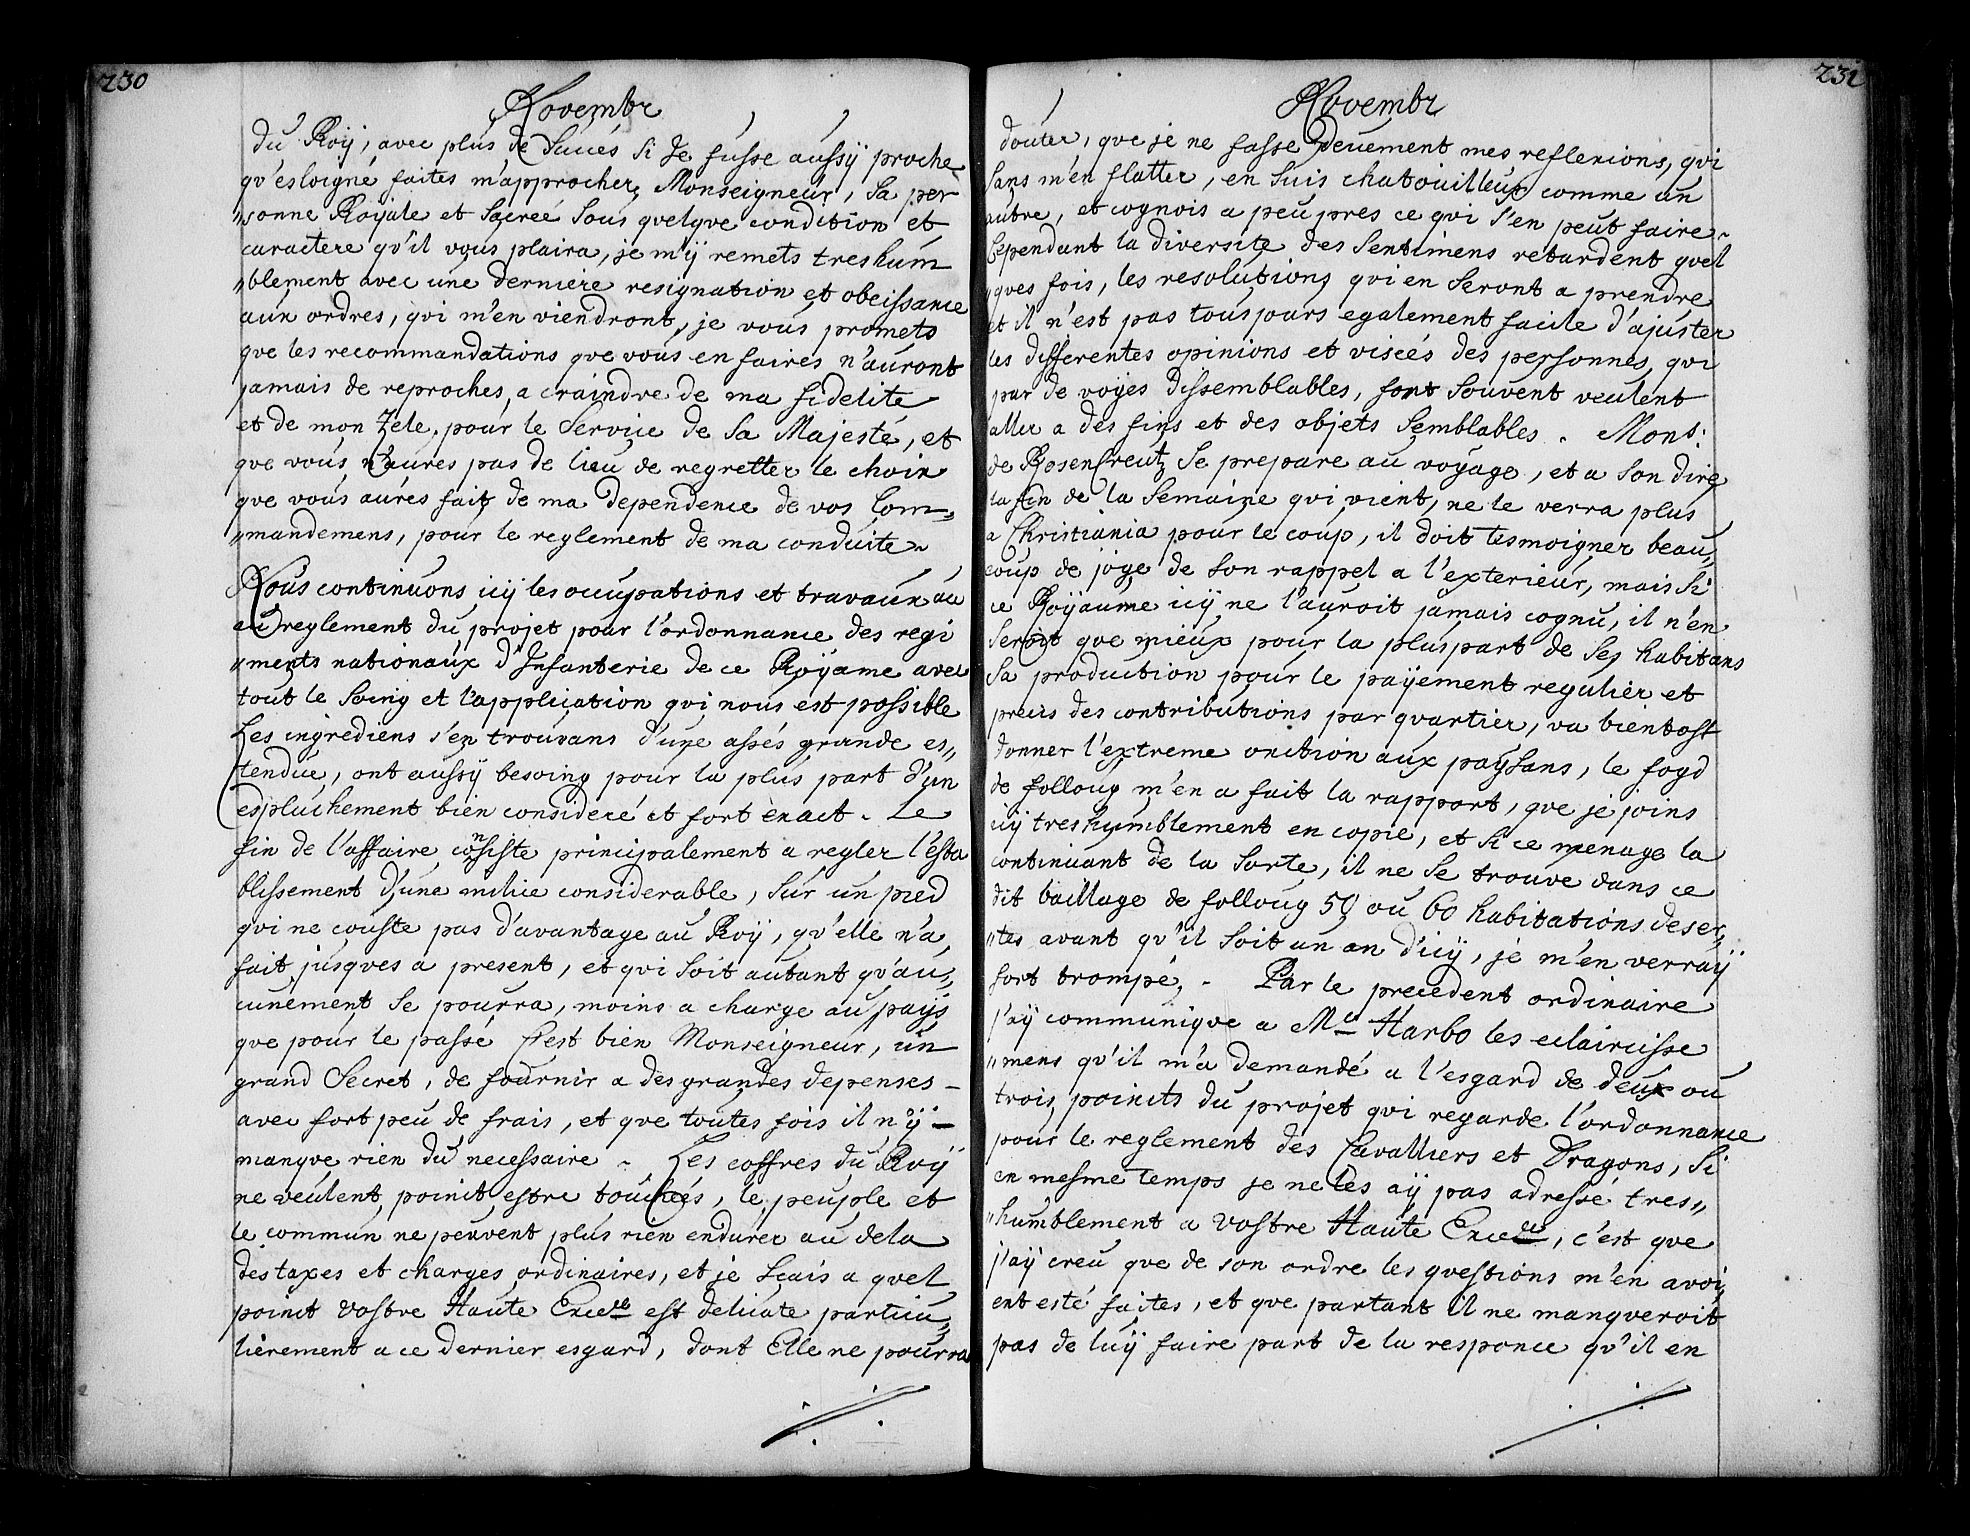 230
Novembr
du Roÿ, avec plus de succés si Je fusse aussÿ proche
qu'esloigné faites m'approcher, Monseigneur, sa per
"sonne Roÿale et sacreé sous quelque condition et
caractere qu'il vous plaira, je m'ÿ remets treshum
"blement avec une derniere resignation et obeissance
aux ordres, qui m'en viendront, je vous promets
que les recommandations que vous en faires n'auront
jamais de reproches, a craindre de ma fidelite
et de mon Zele, pour le Service de Sa Majesté, et
que vous n'aures pas de lieu de regretter le choix
que vous aurés fait de ma Dependence de vos Com=
"mandemens, pour le reglement de ma conduite.
Nous continuons icÿ les occupations et travaux au
au reglement du projet pour l'ordonnance des regi
"ments nationaux d'Infanterie de ce Roÿame avec
tout le soing et l'application qui nous est possible
Les ingrediens s'en trouvans d'une assés grande es"
tendue, ont aussÿ besoing pour la plus part d'un
espluchement bien consideré et fort exact. Le
fin de l'affaire consiste principalement a regler l'esta
blissement d'une milice considerable, sur un pied
qui ne couste pas d'avantage au Roÿ, qu'elle n'a
fait jusques a present, et qui soit autant qu'au"
cunement se pourra, moins a charge au paÿs
que pour le passé C'est bien Monseigneur, un
grand Secret, de fournir a des grandes depenses -
avec fort peu de frais, et que toutes fois il n'ÿ -
manque rien du necessaire. Les coffres du Roÿ
ne veulent point estre touchés, le peuple et
le commun ne peuvent plus rien endurer au dela
des taxes et charges ordinaires, et je scais a quel
point vostre Haute Excelle est delicate particu"
lierement a ce dernier esgard, dont Elle ne pourra
231
Novembr
douter, que je ne fasse Deuement mes reflexions, qui
sans m'en flatter, en suis chatouilleux comme un
autre, et cognois a peu pres ce qui s'en peut faire.
Cependant la diversite des sentimens retardent quel
"ques fois, les resolutions qui en seront a prendre
et il n'est pas tousjours egalement facile d'ajuster
les differentes opinions et viseés des personnes, qui
par de voÿes dissemblables, font souvent veulent
aller a des fins et des objets semblables. Mons:
de RosenCreutz se prepare au voÿage, et a son dire
la fin de la semaine qui vient, ne le verra plus
a Christiania pour le coup, il doit tesmoigner beau"
coup de joÿe de son rappel a l'exterieur, mais si
ce Roÿaume icÿ ne l'auroit jamais cognu, il n'en
seroit que mieux pour la plus part de ses habitans
Sa production pour le paÿement regulier et
precis des contributions par quartier, va bientost
donner l'extreme onction aux paÿsans, le fogd
de follouÿ m'en a fait la rapport, que je joins
icÿ treshumblement en copie, et si ce menage la
continuant de la sorte, il ne se trouve dans ce
dit baillage de follouÿ 50 ou 60 habitations deser"
"tes avant qu'il soit un an d'icÿ, je m'en verraÿ
fort trompé. - Par le precedent ordinaire
j'aÿ communique a Mr Harbo les eclaircisse
"mens qu'il m'a demandé a l'esgard de deux ou
trois points du projet qui regarde l'ordonnance
pour le reglement des Cavalliers et Dragons, si
en mesme temps je ne les aÿ pas adressé tres"
"humblement a vostre Haute Excelle, c'est que
j'aÿ creu que de son ordre les questions m'en avoi
ent esté faites, et que partant il ne manqueroit
pas de luÿ faire part de la responce qu'il en